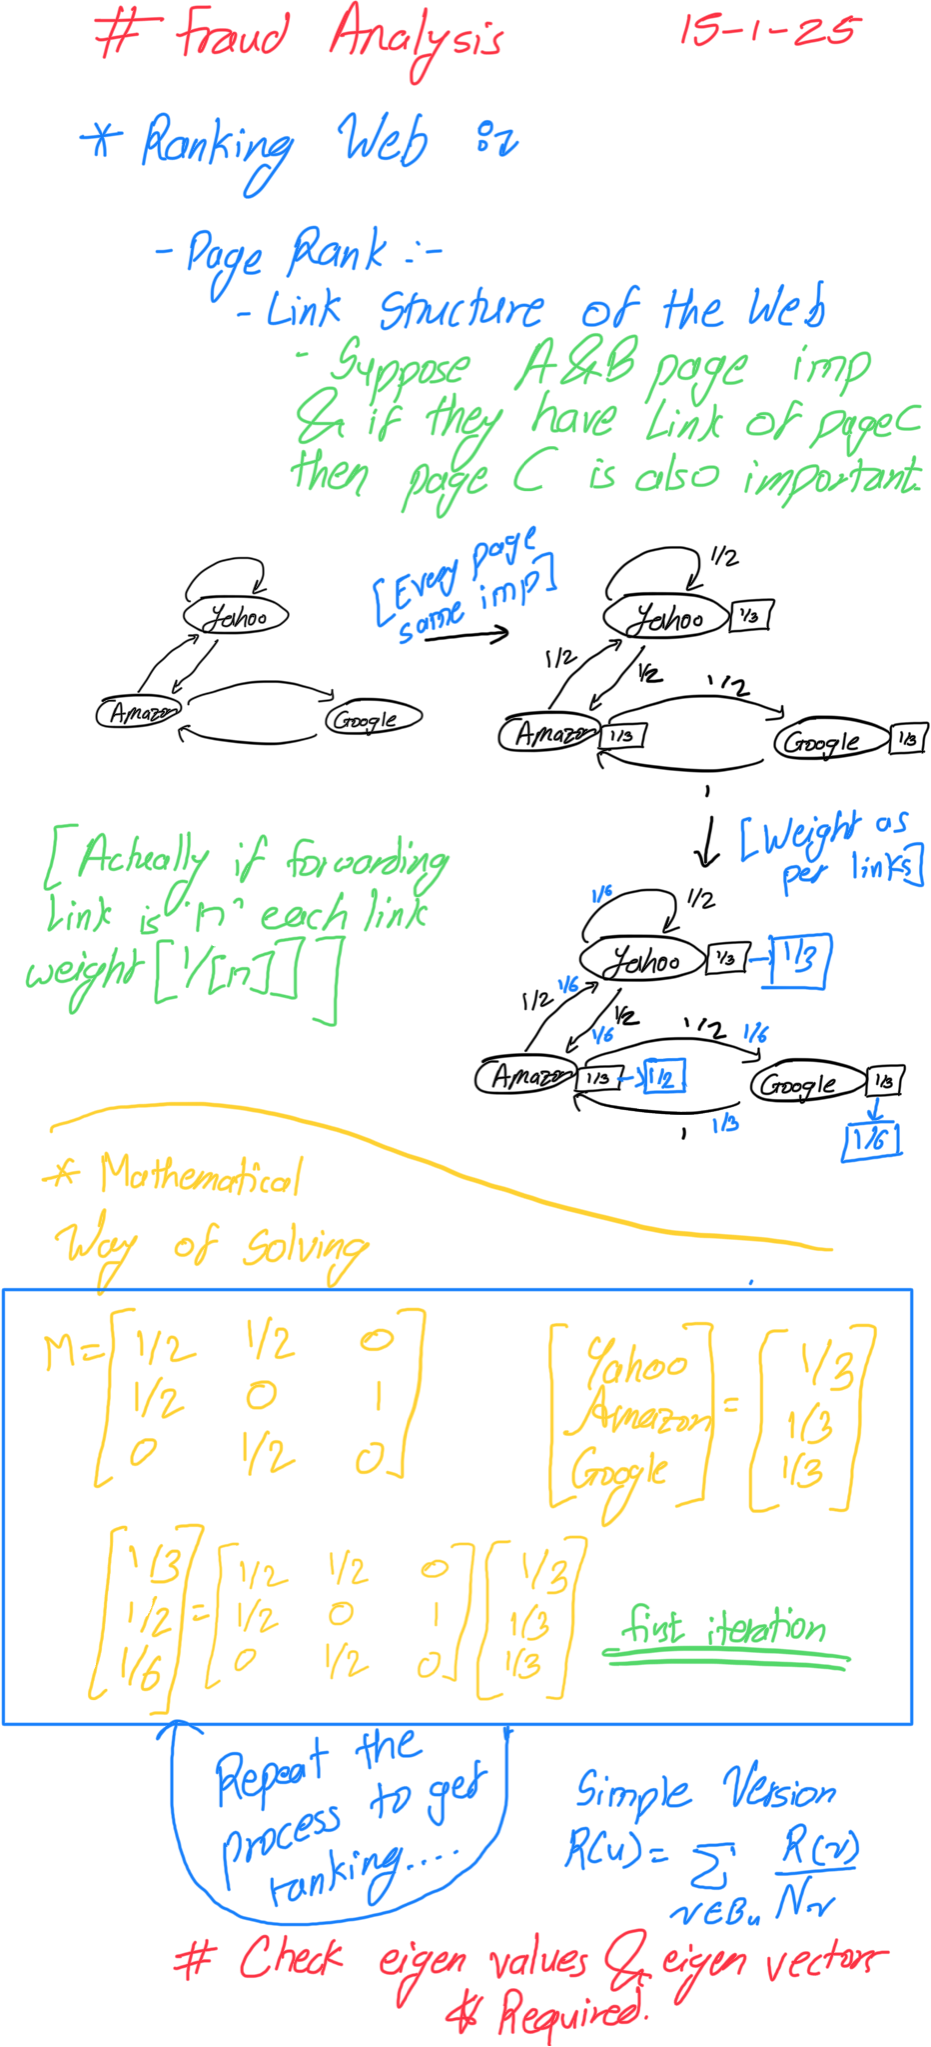 # Fraud Analysis 15-1-25
* Ranking Web :-
- Page Rank :-
- Link Structure of the Web
- Suppose A & B page imp
& if they have Link of page C
then page C is also important.
Yahoo
Amazon
Google
[Every page
same imp]
1/2
Yahoo 1/3
1/2
1/2
1/2
Amazon 1/3
Google 1/3
1
[Weight as
per links]
[Actually if forwarding
Link is "n" each link
weight [1/[n]]]
1/6 1/2
Yahoo 1/3 → 1/3
1/2 1/6
1/2
1/6
1/2 1/6
Amazon 1/3 → 1/2
Google 1/3
1 1/3
1/6
* Mathematical
Way of Solving
M = [ 1/2 1/2 0
1/2 0 1
0 1/2 0 ]
[ Yahoo
Amazon
Google ] = [ 1/3
1/3
1/3 ]
[ 1/3
1/2
1/6 ] = [ 1/2 1/2 0
1/2 0 1
0 1/2 0 ] [ 1/3
1/3
1/3 ]
first iteration
Repeat the
process to get
ranking....
Simple Version
R(u) = ∑ v∈Bu R(v)/Nv
# Check eigen values & eigen vectors
* Required.